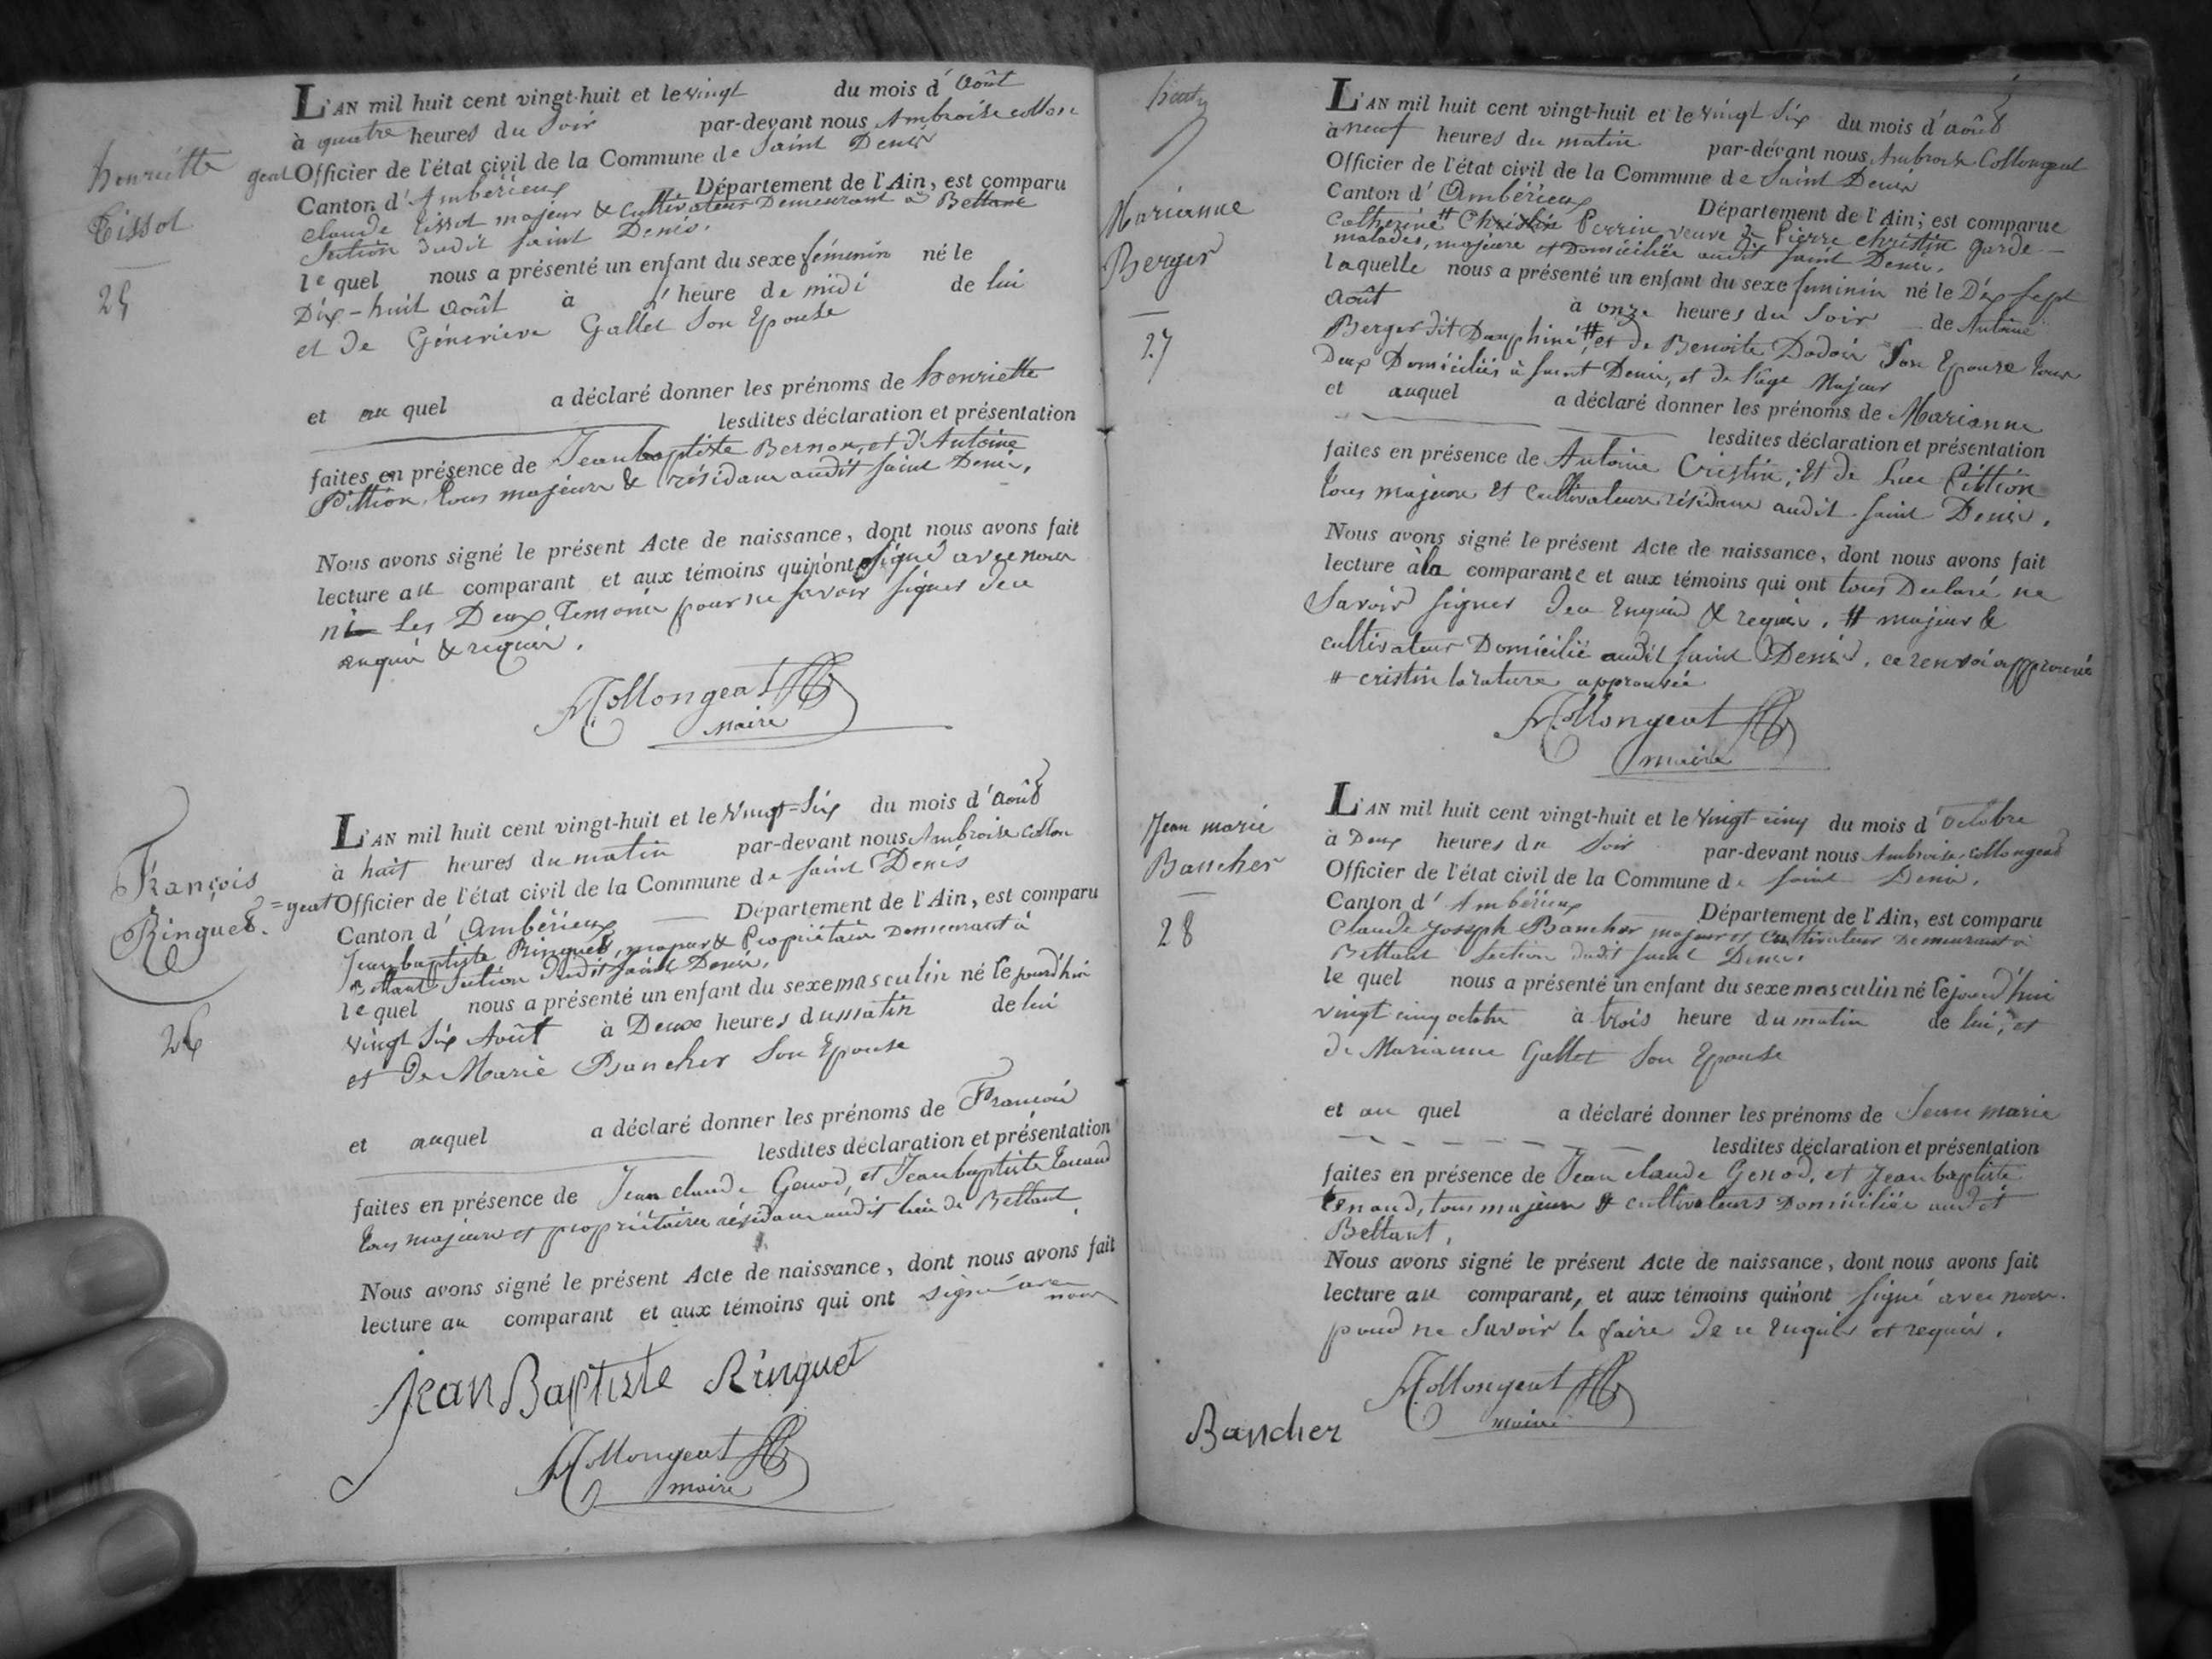 henriette
Tissot
25
L'AN mil huit cent vingt-huit et le vingt du mois d'Août
à quatre heures du Soir par-devant nous Ambroise Collon
geat Officier de l'état civil de la Commune de Saint Denis
Canton d'Ambérieux Département de l'Ain, est comparu
Claude Tissot majeur & Cultivateur Demeurant à Bettant
Section dudit Saint Denis.
le quel nous a présenté un enfant du sexe féminin né le
Dix-huit Août à l'heure de midi de lui
et De Géneviève Gallet Son Epouse
et au quel a déclaré donner les prénoms de henriette
lesdites déclaration et présentation
faites en présence de Jean baptiste Bernox, et d'Antoine
Pittion, tous majeurs & résidans audit Saint Denis.
Nous avons signé le présent Acte de naissance, dont nous avons fait
lecture au comparant et aux témoins qui n'ont signé avec nous
ni les Deux Temoins pour ne savoir signer de ce
enquis & requis.
ACollongeat
maire
François
Ringuet.
26
L'AN mil huit cent vingt-huit et le Vingt-Six du mois d'Août
à huit heures du matin par-devant nous Ambroise Collon
=geat Officier de l'état civil de la Commune de Saint Denis
Canton d'Ambérieux Département de l'Ain, est comparu
Jean baptiste Ringuet, majeur & Propriétaire Demeurant à
Bettant Section dudit Saint Denis.
le quel nous a présenté un enfant du sexe masculin né le jourd'hui
vingt Six Août à Deux heures du matin de lui
et De Marie Bancher Son Epouse
et auquel a déclaré donner les prénoms de François
lesdites déclaration et présentation
faites en présence de Jean claude Genod, et Jean baptiste Tenand
tous majeurs et propriétaires résidans audit lieu de Bettant.
Nous avons signé le présent Acte de naissance, dont nous avons fait
lecture au comparant et aux témoins qui ont signé avec
nous
Jean Baptiste Ringuet
ACollongeat
maire
Marianne
Berger
27
L'AN mil huit cent vingt-huit et le vingt Six du mois d'août
à neuf heures du matin par-devant nous Ambroise Collongeat
Officier de l'état civil de la Commune de Saint Denis
Canton d'Ambérieux Département de l'Ain; est comparue
Catherine # Christin Perrin veuve de Pierre Christin garde-
malades, majeure et Domiciliée audit Saint Denis.
laquelle nous a présenté un enfant du sexe feminin né le Dix Sept
Août à onze heures du Soir de Antoine
Berger dit Dauphiné, # et de Benoite Dodoir Son Epouse tous
Deux Domiciliés à Saint Denis, et de l'âge Majeur
et auquel a déclaré donner les prénoms de Marianne
lesdites déclaration et présentation
faites en présence de Antoine Cristin; et de Luc Pittion
tous majeurs et Cultivateurs résidans audit Saint Denis.
Nous avons signé le présent Acte de naissance, dont nous avons fait
lecture à la comparante et aux témoins qui ont tous Declaré ne
Savoir signer de ce Enquis & requis. # majeur &
cultivateur Domicilié audit Saint Denis. ce renvoi approuvé
# cristin la rature approuvée
ACollongeat
maire
Jean marie
Bancher
28
L'AN mil huit cent vingt-huit et le Vingt cinq du mois d'Octobre
à Deux heures du Soir par-devant nous Ambroise Collongeat
Officier de l'état civil de la Commune de Saint Denis.
Canton d'Ambérieux Département de l'Ain, est comparu
Claude Joseph Bancher majeur et Cultivateur Demeurant à
Bettant Section dudit Saint Denis.
le quel nous a présenté un enfant du sexe masculin né le jourd'hui
vingt cinq octobre à trois heure du matin de lui, et
de Marianne Gallet Son Epouse
et au quel a déclaré donner les prénoms de Jean marie
lesdites déclaration et présentation
faites en présence de Jean claude Genod, et Jean baptiste
Tenand, tous majeurs & cultivateurs Domiciliés audit
Bettant.
Nous avons signé le présent Acte de naissance, dont nous avons fait
lecture au comparant, et aux témoins qui n'ont signé avec nous.
pour ne Savoir le faire de ce Enquis et requis.
ACollongeat
maire
Bancher